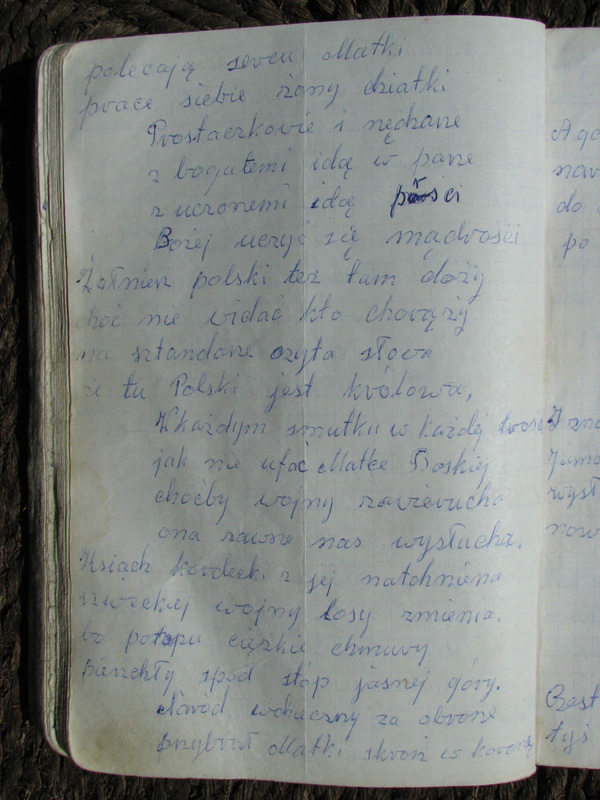 polecają sercu Matki
prace siebie żony dziatki
Prostaczkowie i nędzaze
z bogatemi idą w paze
z uczonemi idą prości
Bożej uczyć się mądrości
Żołnierz polski też tam dąży
choć nie widać kto chorąży
na sztandaze czyta słowa
że tu Polski jest królowa,
W każdym smutku w każdej
jak nie ufać Matce Boskiej
choćby wojny zawierucha
ona zawsze nas wysłucha.
Ksiądz kordecki z jej natchniena
szweckiej wojny losy zmienia.
bo potopu ciężkie chmury
pierzchły spod stóp jasnej góry.
Naród wdzięczny za obronę
przybrał Matki skroń w koronę
do
po